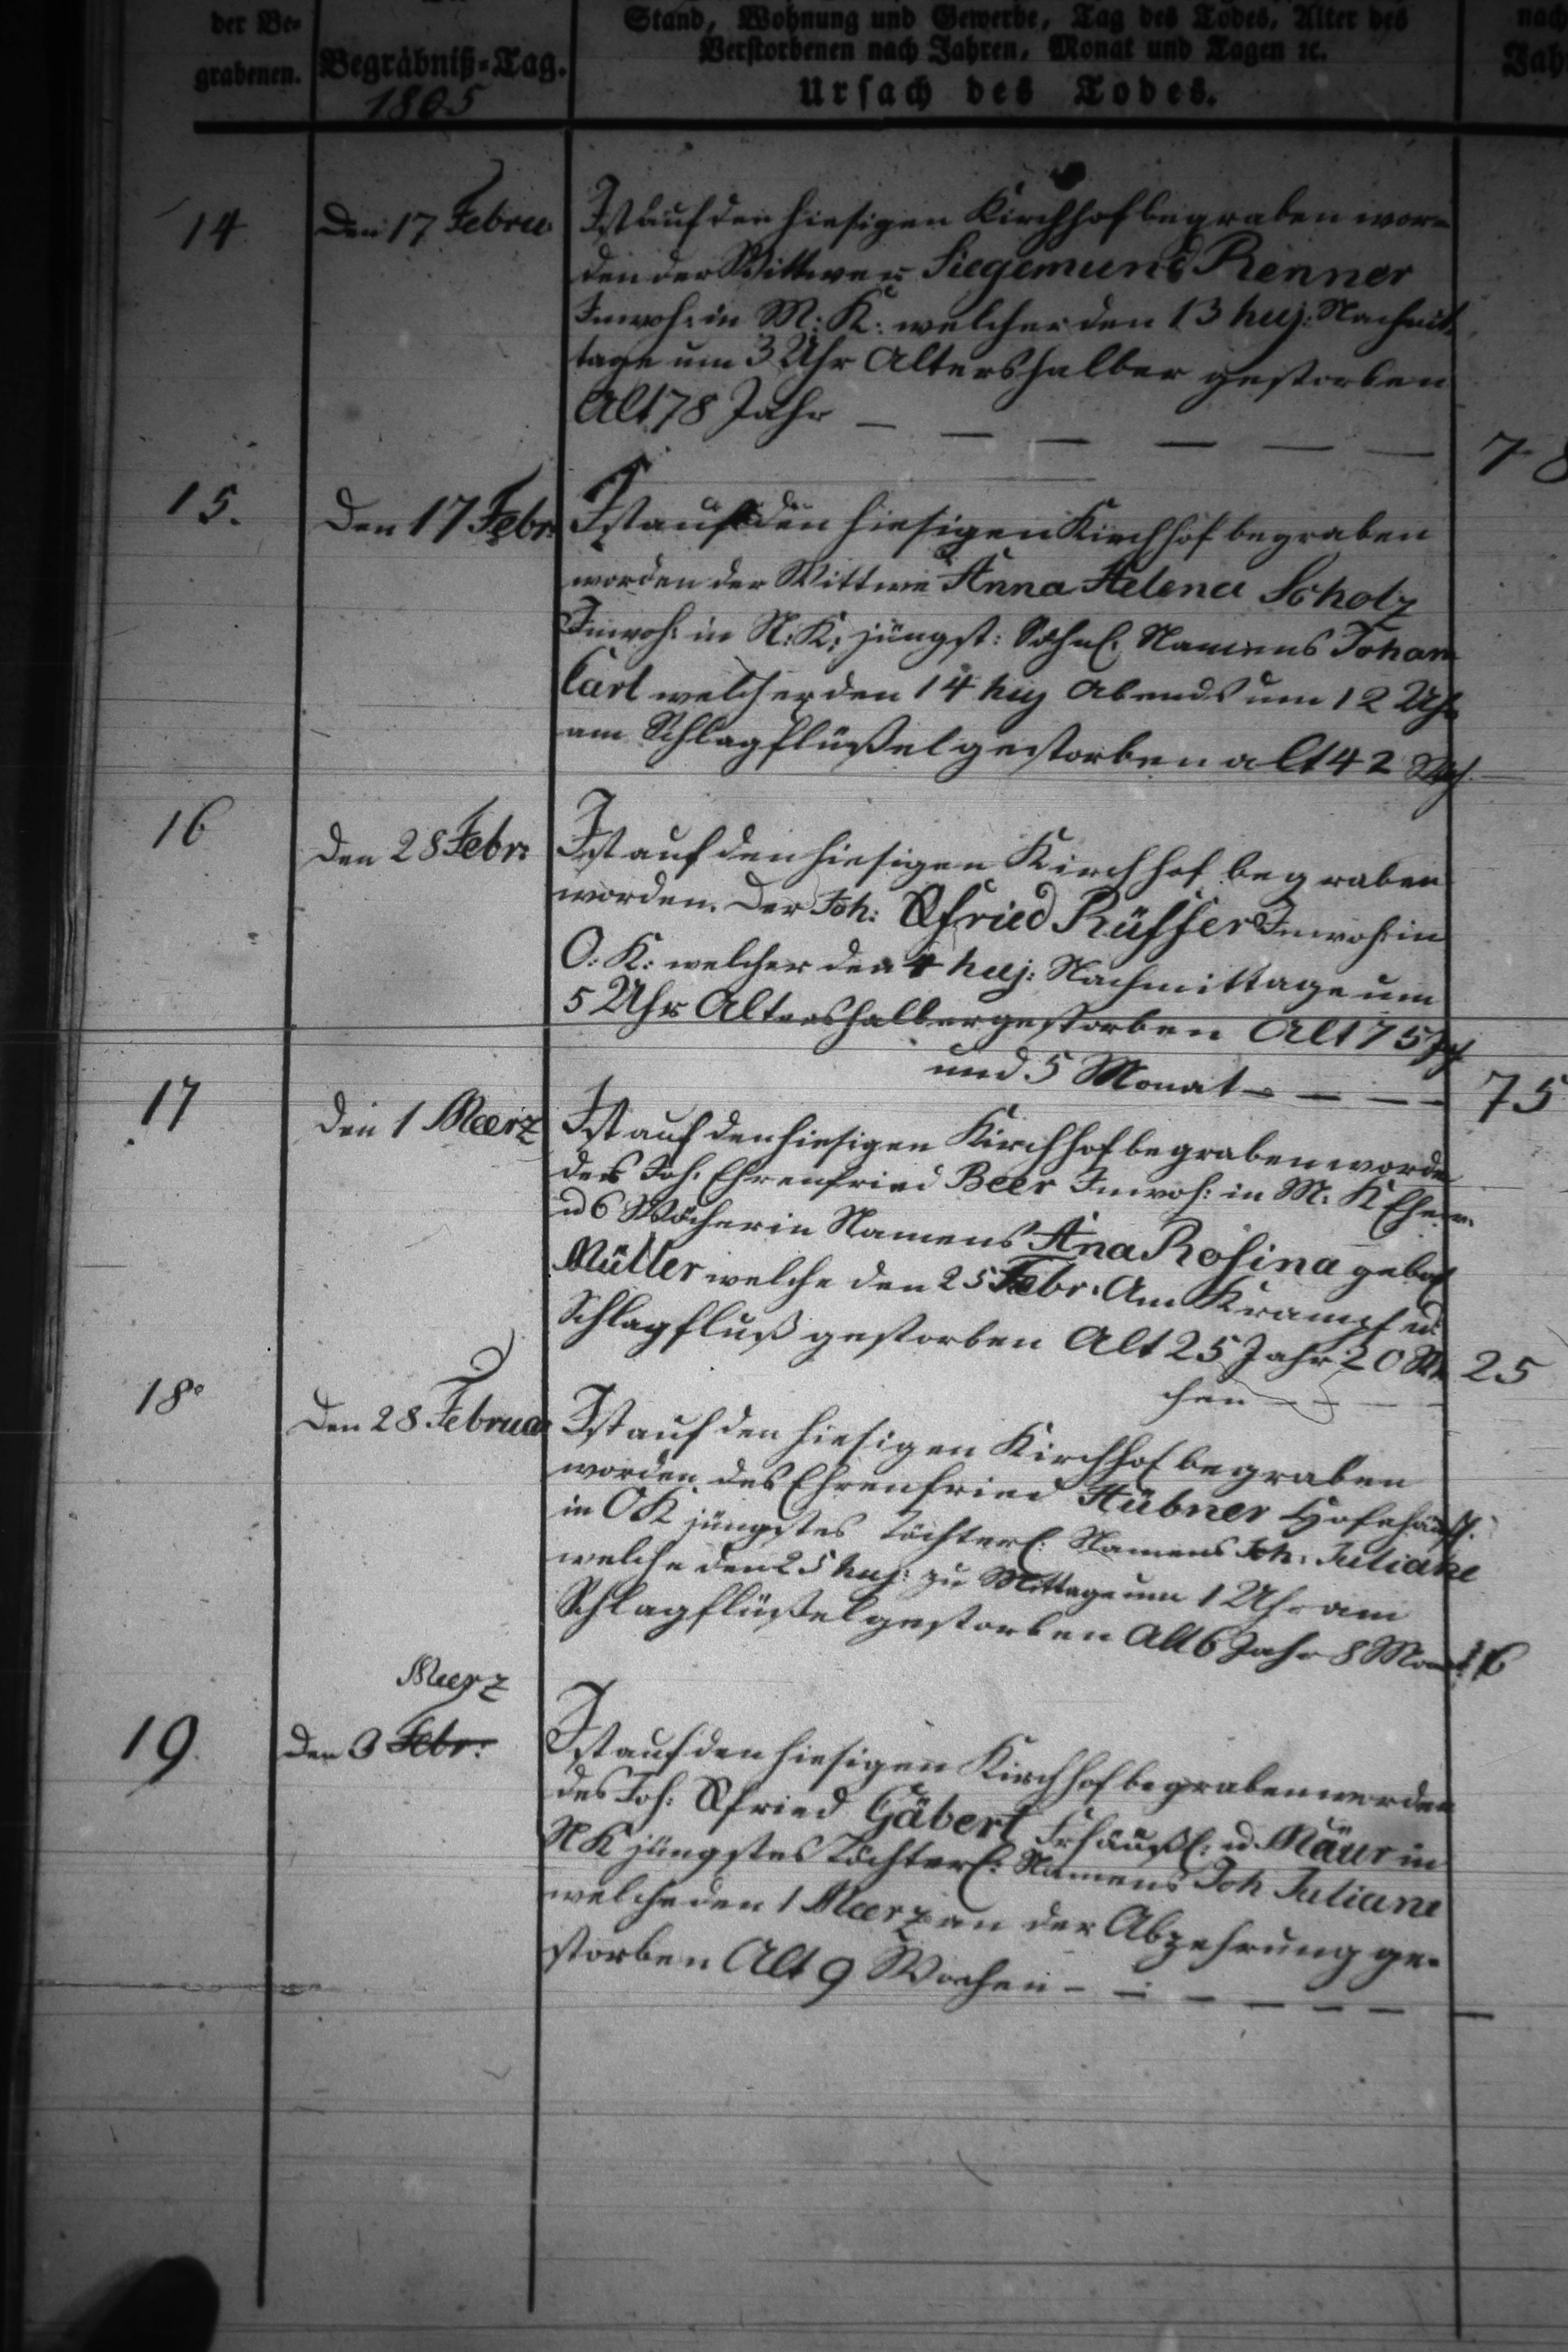 der Be-
grabenen.
Begräbniß-Tag.
1805
Stand, Wohnung und Gewerbe, Tag des Todes, Alter des
Verstorbenen nach Jahren, Monat und Tagen ꝛc.
Ursach des Todes.
nach
Jah
14
Den 17 Febru
Ist auf den hiesigen Kirchhof begraben wor-
den der Wittwer Siegemund Renner
Inwoh: in M: K: welcher den 13 huj: Nachmit
tage um 3 Uhr Altershalber gestorben
Alt 78 Jahr — — — — — —
78
15.
Den 17 Febr:
Ist auf den hiesigen Kirchhof begraben
worden der Wittwe Anna Helena Scholz
Inwoh: in N: K: jüngst: Söhnl: Namens Johan
Carl welcher den 14 huj Abends um 12 Uhr
am Schlagflüßel gestorben alt 42
16
Den 28 Febr:
Ist auf den hiesigen Kirchhof begraben
worden. Der Joh: Gfried Rüffer Inwoh: in
O: K: welcher den 4 huj: Nachmittage um
5 Uhr Altershalber gestorben Alt 75
und 5 Monat — — — —
75
17
Den 1 Maerz
Ist auf den hiesigen Kirchhof begraben worde
des Joh: Ehrenfried Beer Inwoh: in M: K
u 6 Wöcherin Namens Ana Rosina gebor
Müller welche den 25 Febr. Am Krampf u
Schlagfluß gestorben Alt 25 Jahr 20 Wo
chen — — —
25
18.
Den 28 Februar
Ist auf den hiesigen Kirchhof begraben
worden. des Ehrenfried Hübner Hofehäußl.
in OK jüngstes Töchterl: Namens Joh: Juliane
welche den 25 huj: zu Mittage um 1 Uhr am
Schlagflüßel gestorben Alt 6 Jahr 8 Mon
6
19.
Maerz
Den 3 Febr:
Ist auf den hiesigen Kirchhof begraben worden
des Joh: Gfried Gäbert Frhäußl: u. Mäur in
NK jüngstes Töchterl: Namens Joh Juliane
welche den 1 Maerz an der Abzehrung ge-
storben Alt 9 Wochen — — — — — — —